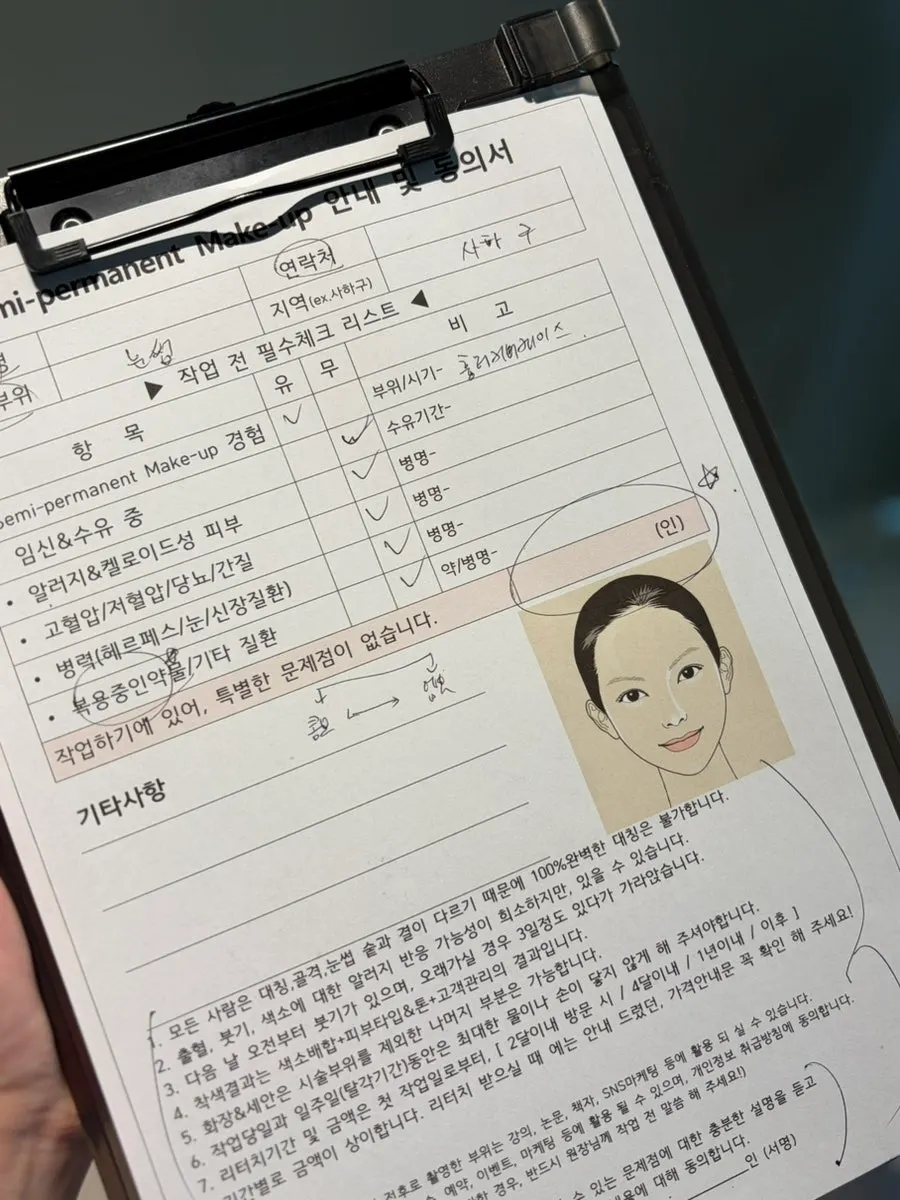 mi-permanent Make-up 안내 및 동의서
연락처
지역(ex.사하구) 사하구
부위 눈썹
▶ 작업 전 필수체크 리스트 ◀
항 목 유 무 비 고
Semi-permanent Make-up 경험 ✓ 부위/시기-
임신&수유 중 ✓ 수유기간-
• 알러지&켈로이드성 피부 ✓ 병명-
• 고혈압/저혈압/당뇨/간질 ✓ 병명-
• 병력(헤르페스/눈/신장질환) ✓ 병명-
• 복용중인약물/기타 질환 ✓ 약/병명-
작업하기에 있어, 특별한 문제점이 없습니다. (인)
기타사항
1. 모든 사람은 대칭,골격,눈썹 숱과 결이 다르기 때문에 100%완벽한 대칭은 불가합니다.
2. 출혈, 붓기, 색소에 대한 알러지 반응 가능성이 희소하지만, 있을 수 있습니다.
3. 다음 날 오전부터 붓기가 있으며, 오래가실 경우 3일정도 있다가 가라앉습니다.
4. 착색결과는 색소배합+피부타입&톤+고객관리의 결과입니다.
5. 화장&세안은 시술부위를 제외한 나머지 부분은 가능합니다.
6. 작업당일과 일주일(탈각기간)동안은 최대한 물이나 손이 닿지 않게 해 주셔야합니다.
7. 리터치기간 및 금액은 첫 작업일로부터, [ 2달이내 방문 시 / 4달이내 / 1년이내 / 이후 ]
기간별로 금액이 상이합니다. 리터치 받으실 때 에는 안내 드렸던, 가격안내문 꼭 확인 해 주세요!
전후로 촬영한 부위는 강의, 논문, 책자, SNS마케팅 등에 활용 되 실 수 있습니다.
예약, 이벤트, 마케팅 등에 활용 될 수 있으며, 개인정보 취급방침에 동의합니다.
경우, 반드시 원장님께 작업 전 말씀 해 주세요!)
수 있는 문제점에 대한 충분한 설명을 듣고
내용에 대해 동의합니다.
인 (서명)